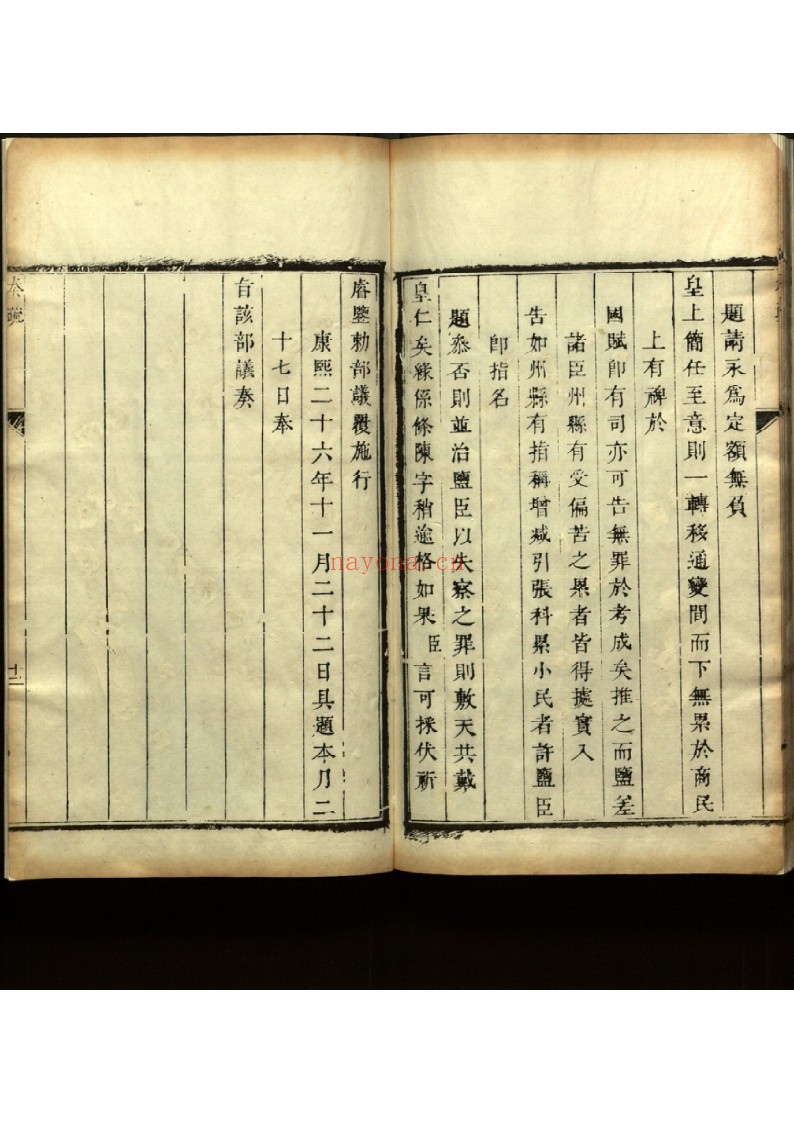 題請永爲定額無負
皇上簡任至意則一轉移通變間而下無累於商民
上有裨於
國賦卽有司亦可告無罪於考成矣推之而鹽差
諸臣州縣有受偏苦之累者皆得據實入
告如州縣有指稱增减引張科累小民者許鹽臣
卽指名
題叅否則並治鹽臣以失察之罪則敷天共戴
皇仁矣緣係條陳字稍逾格如果臣言可採伏祈
睿鑒勅部議覆施行
康熙二十六年十一月二十二日具題本月二
十七日奉
旨該部議奏
奏疏
十二
nayona.cn